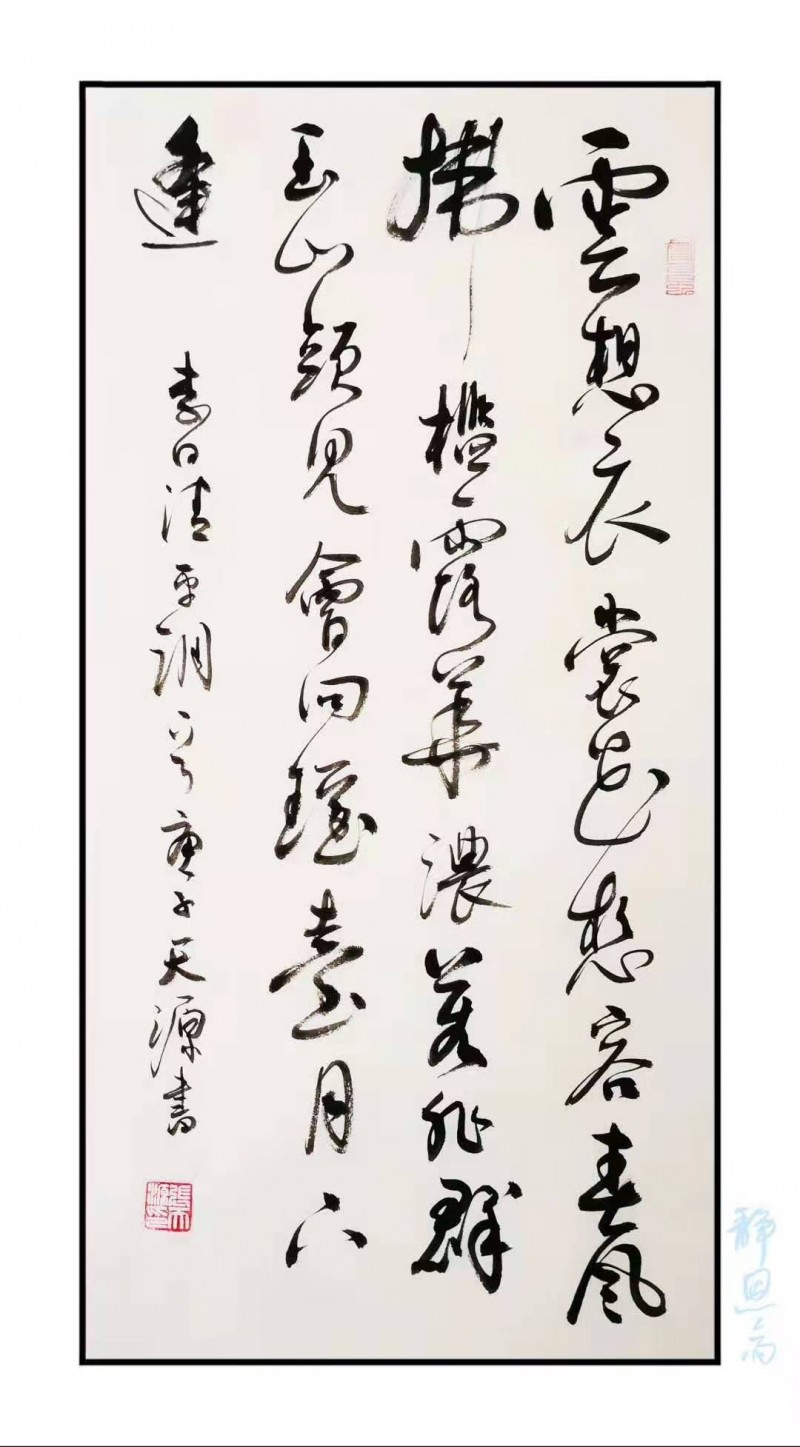 雲想衣裳花想容春風
拂檻露華濃若非群
玉山頭見會向瑤臺月下
逢
李白清平調 庚子天源書
張天源印